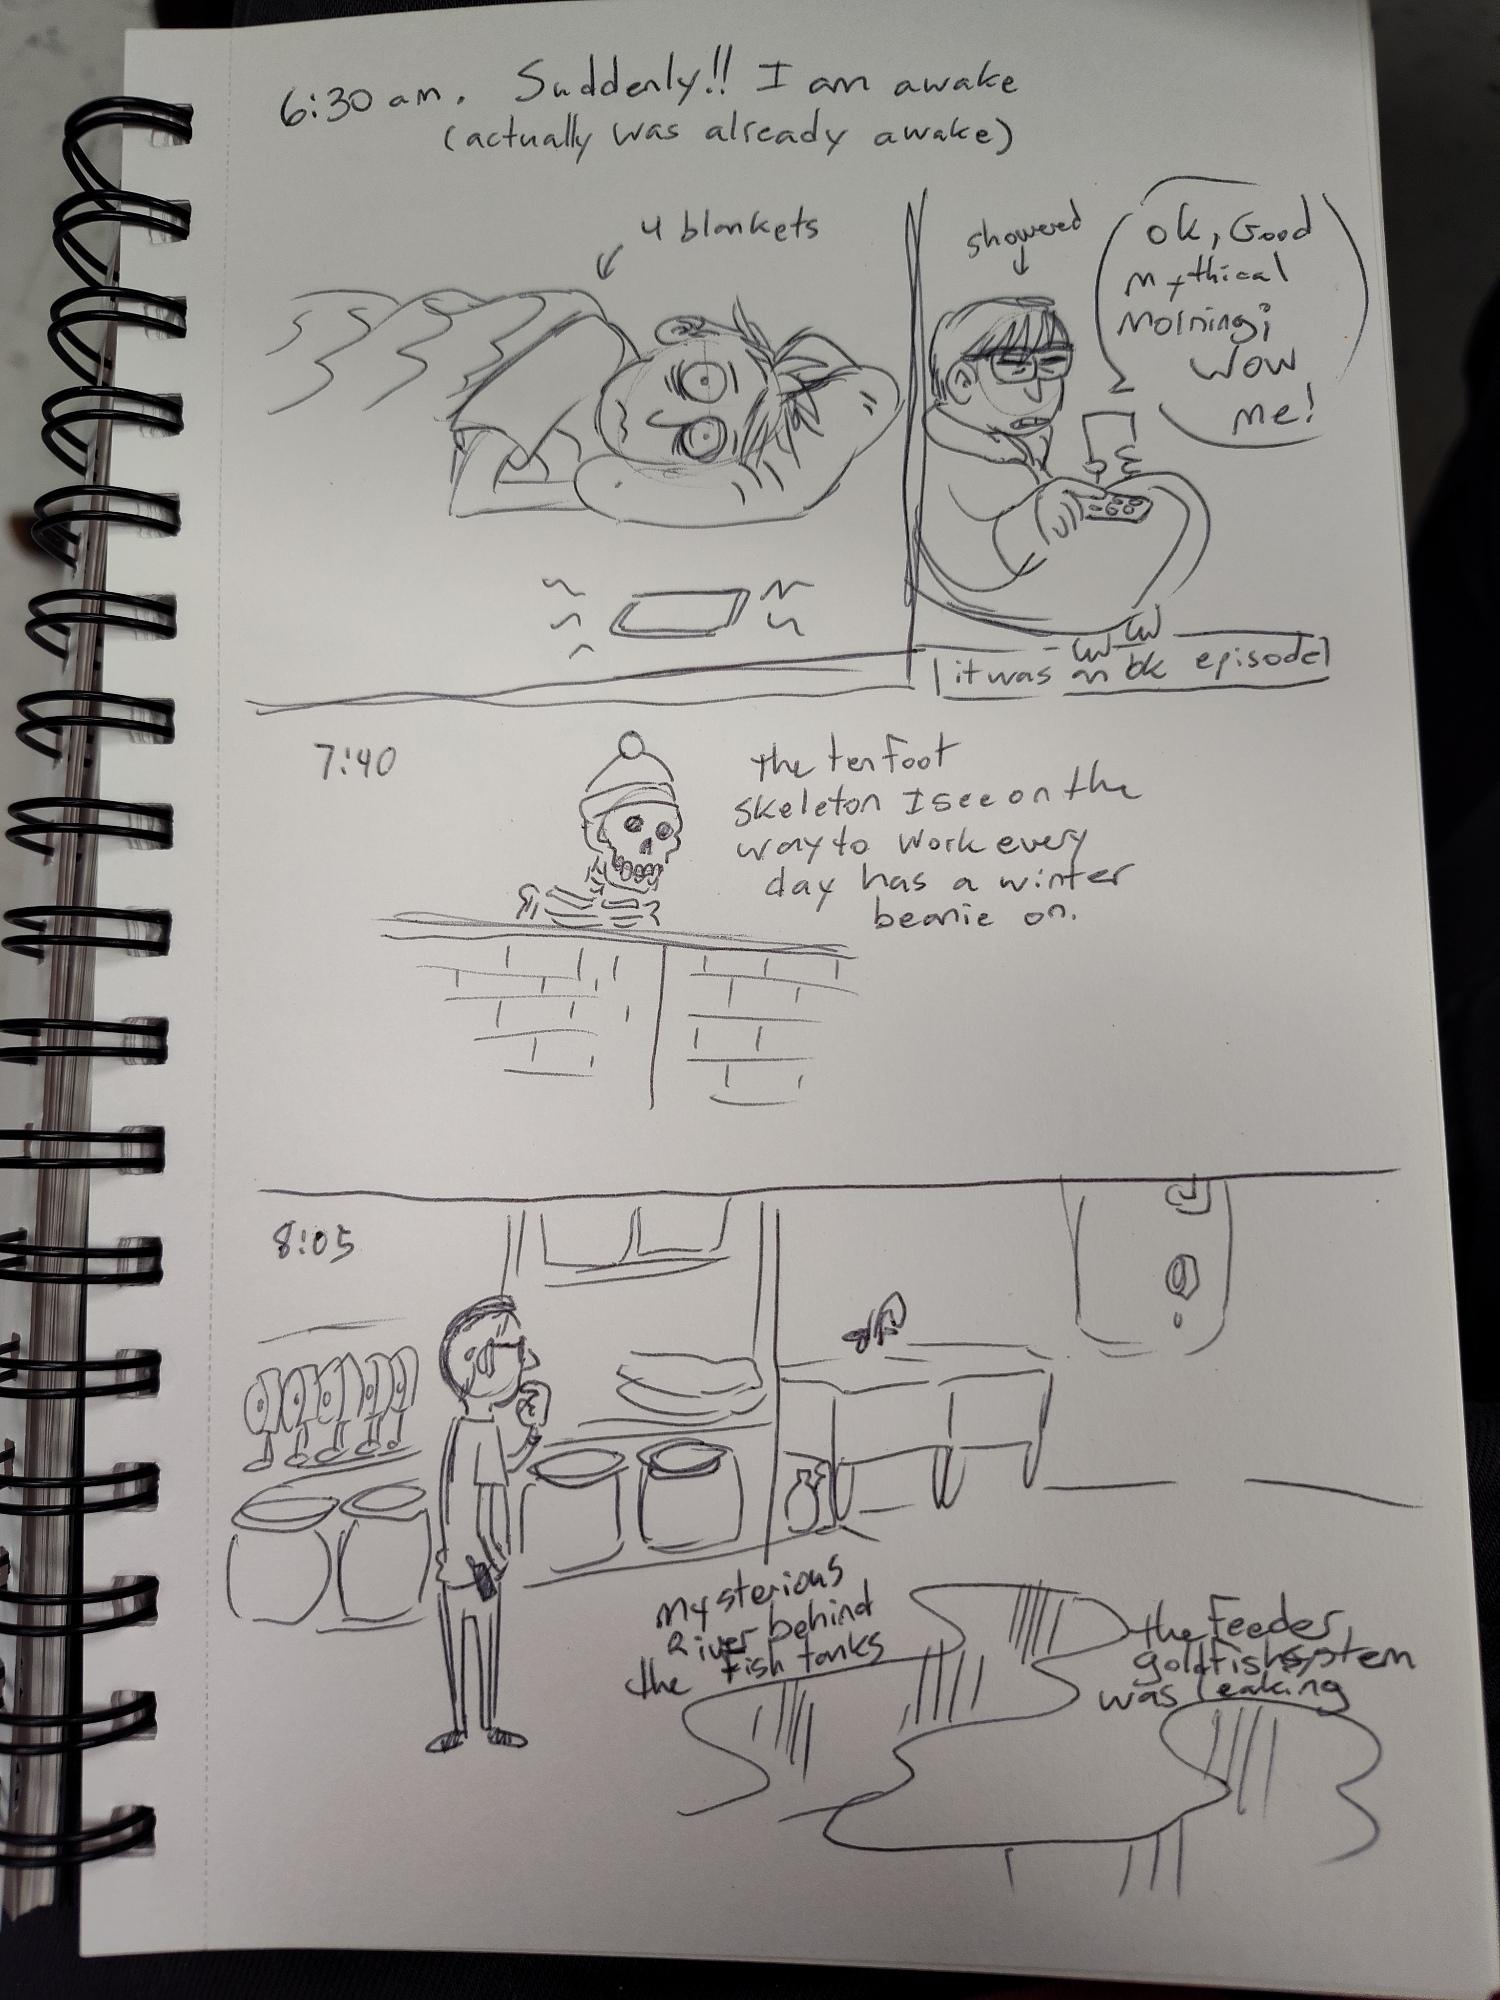 6:30 am. Suddenly!! I am awake
(actually was already awake)
4 blankets
showered
ok, Good
Mythical
Morning;
Wow
me!
it was an ok episode
7:40
the ten foot
skeleton I see on the
way to work every
day has a winter
beanie on.
8:05
Mysterious
River behind
the fish tanks
the feeder
goldfish system
was leaking